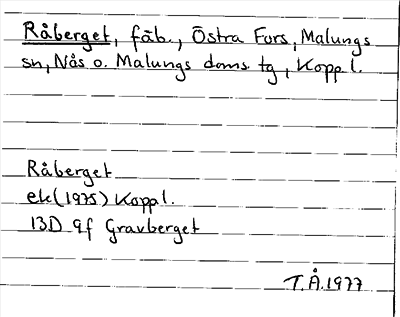 Råberget, fäb., Östra Fors, Malungs
sn, Nås o. Malungs doms. tg, Kopp l.
Råberget
ek (1975) Kopp l.
13D 9f Gravberget
T.Å.1977